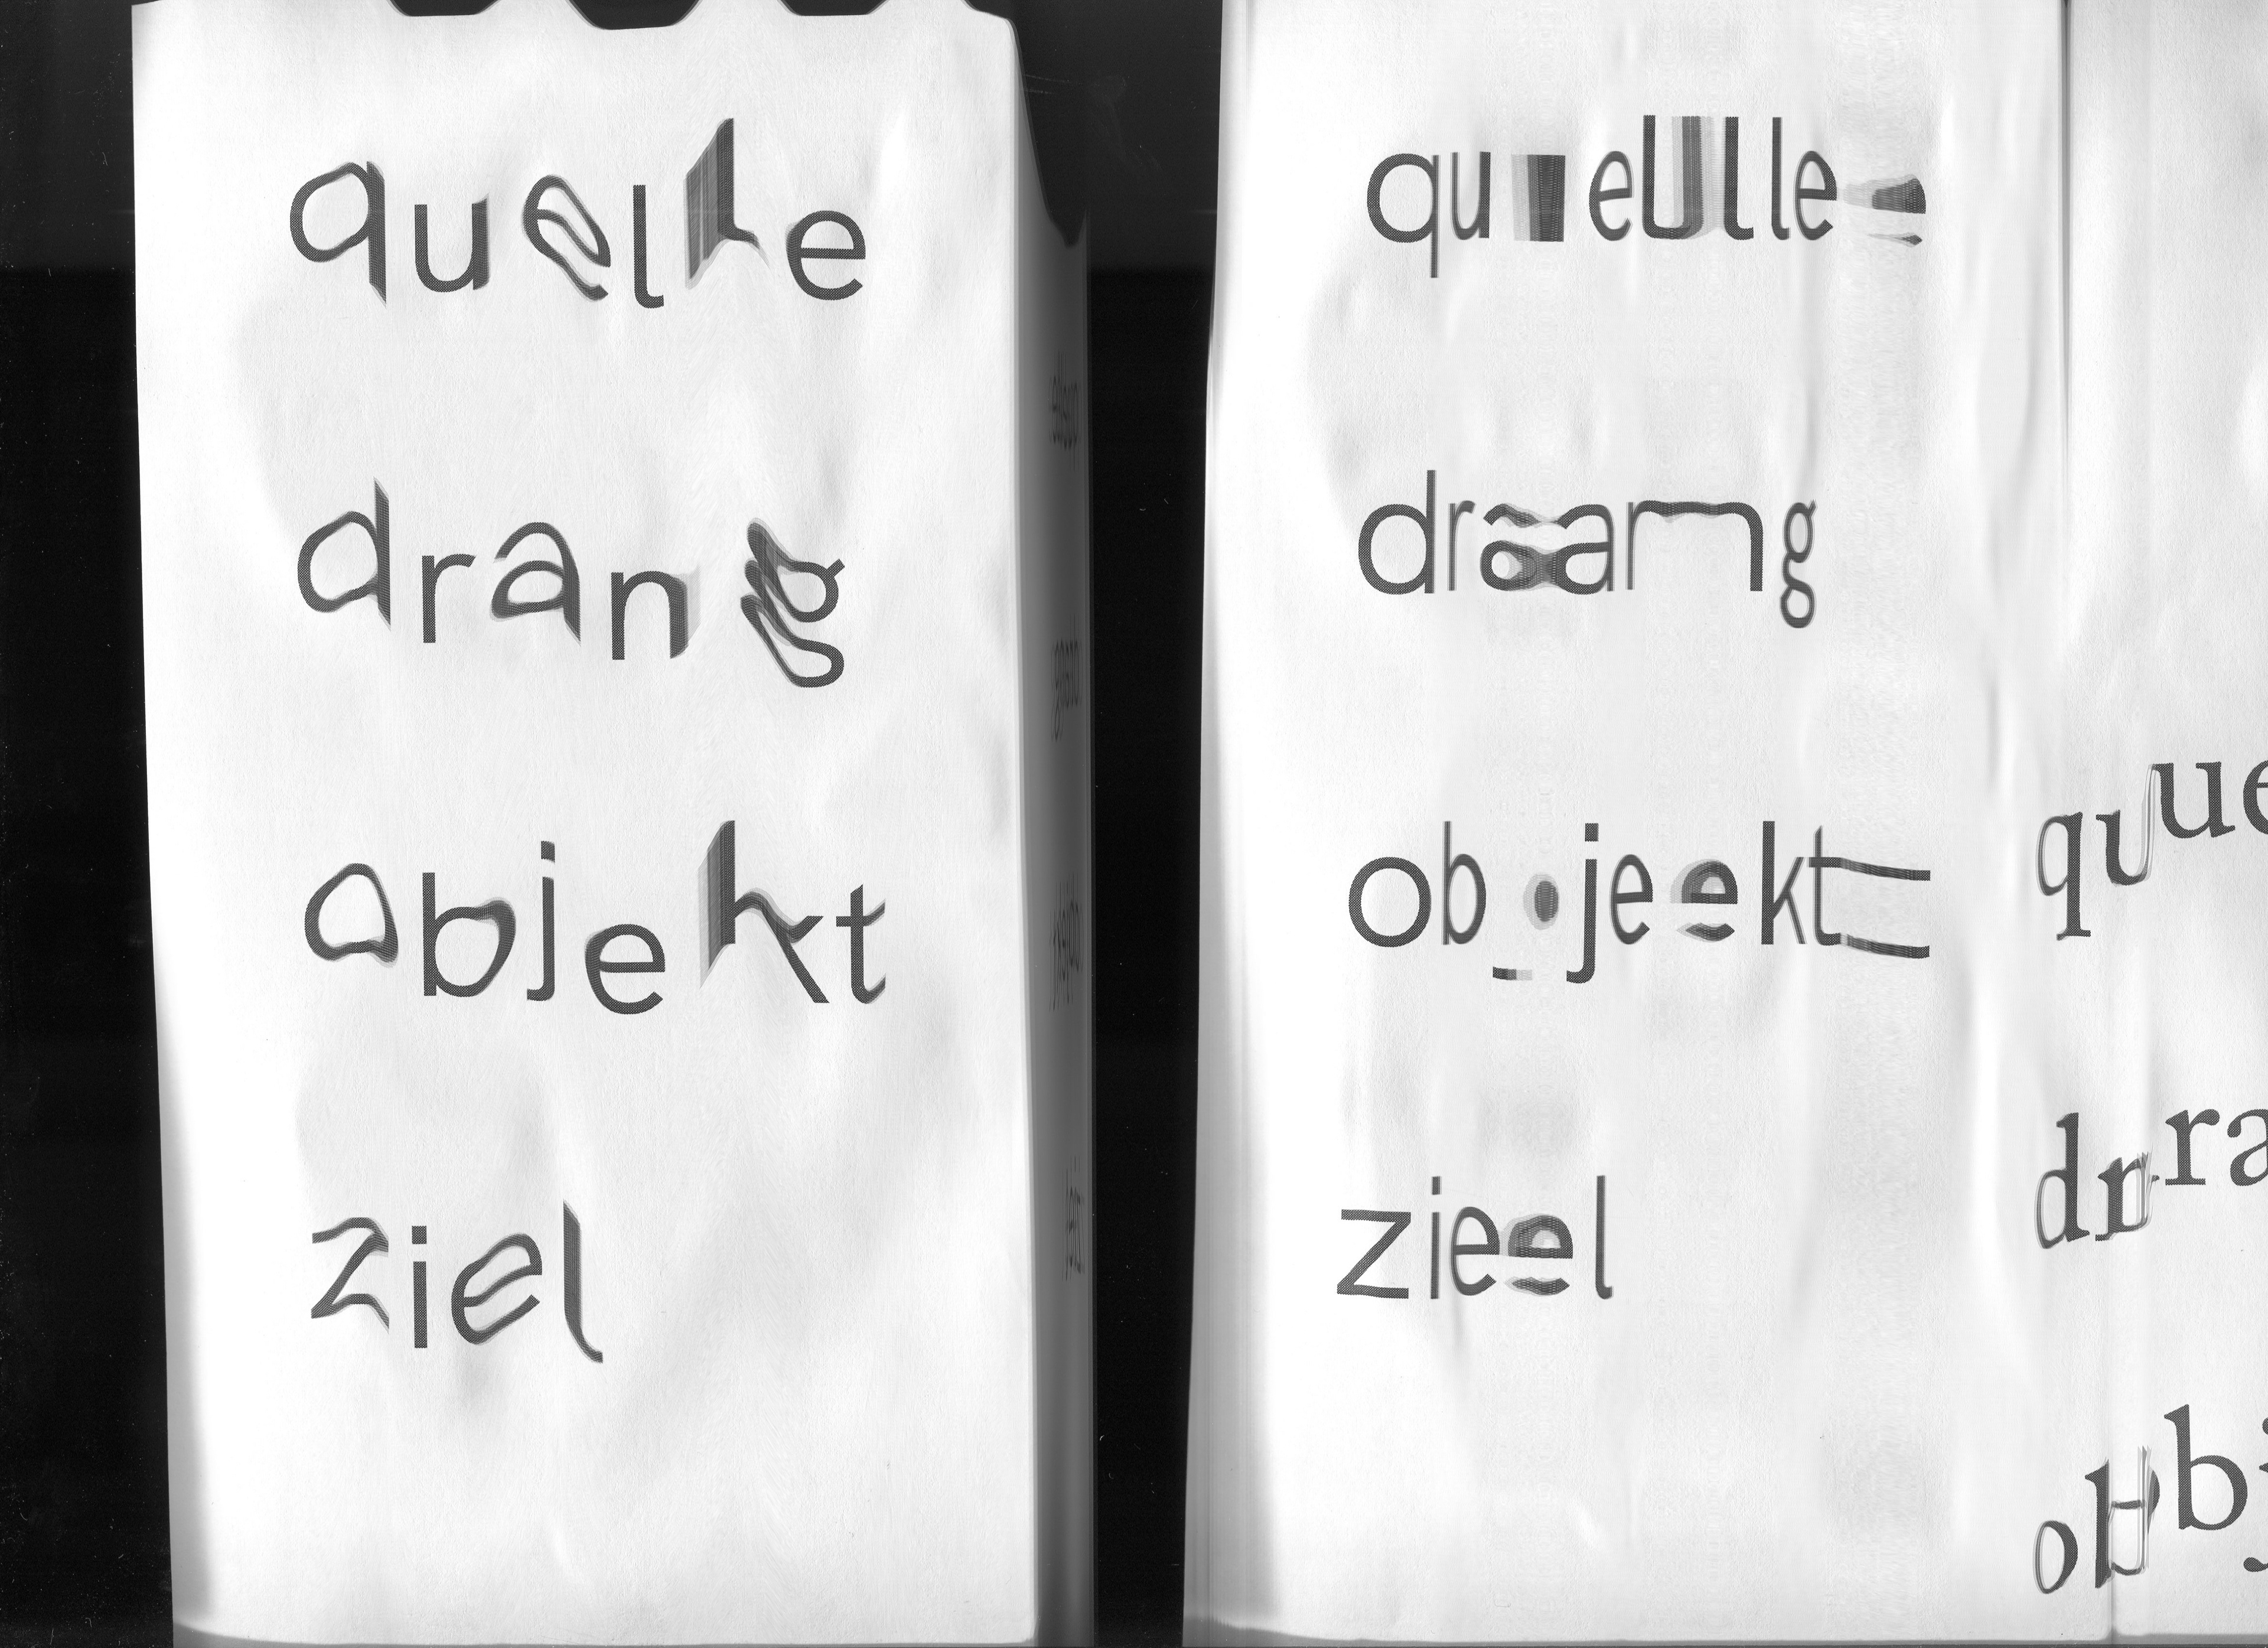 quelle
drang
objekt
ziel
quelle
drang
objekt
ziel